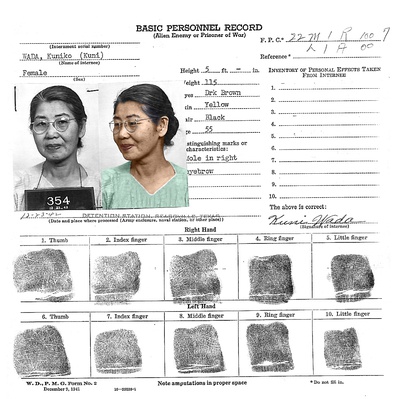 BASIC PERSONNEL RECORD
(Alien Enemy or Prisoner of War)
(Internment serial number)
F. P. C.* 22 M 1 R 100 7
L 1 A 00
WADA, Kuniko (Kuni)
(Name of internee)
Reference*
Female
(Sex)
Height 5 ft. - in.
eight 115
yes Drk Brown
in Yellow
air Black
e 55
stinguishing marks or
characteristics:
ole in right
yebrow
INVENTORY OF PERSONAL EFFECTS TAKEN
FROM INTERNEE
1.
2.
3.
4.
5.
6.
7.
8.
9.
10.
354
The above is correct:
Kuni Wada
(Signature of internee)
DETENTION STATION, SEAGOVILLE, TEXAS
(Date and place where processed (Army enclosure, naval station, or other place))
Right Hand
1. Thumb
2. Index finger
3. Middle finger
4. Ring finger
5. Little finger
Left Hand
6. Thumb
7. Index finger
8. Middle finger
9. Ring finger
10. Little finger
W. D., P. M. G. Form No. 2
December 9, 1941
Note amputations in proper space
* Do not fill in.